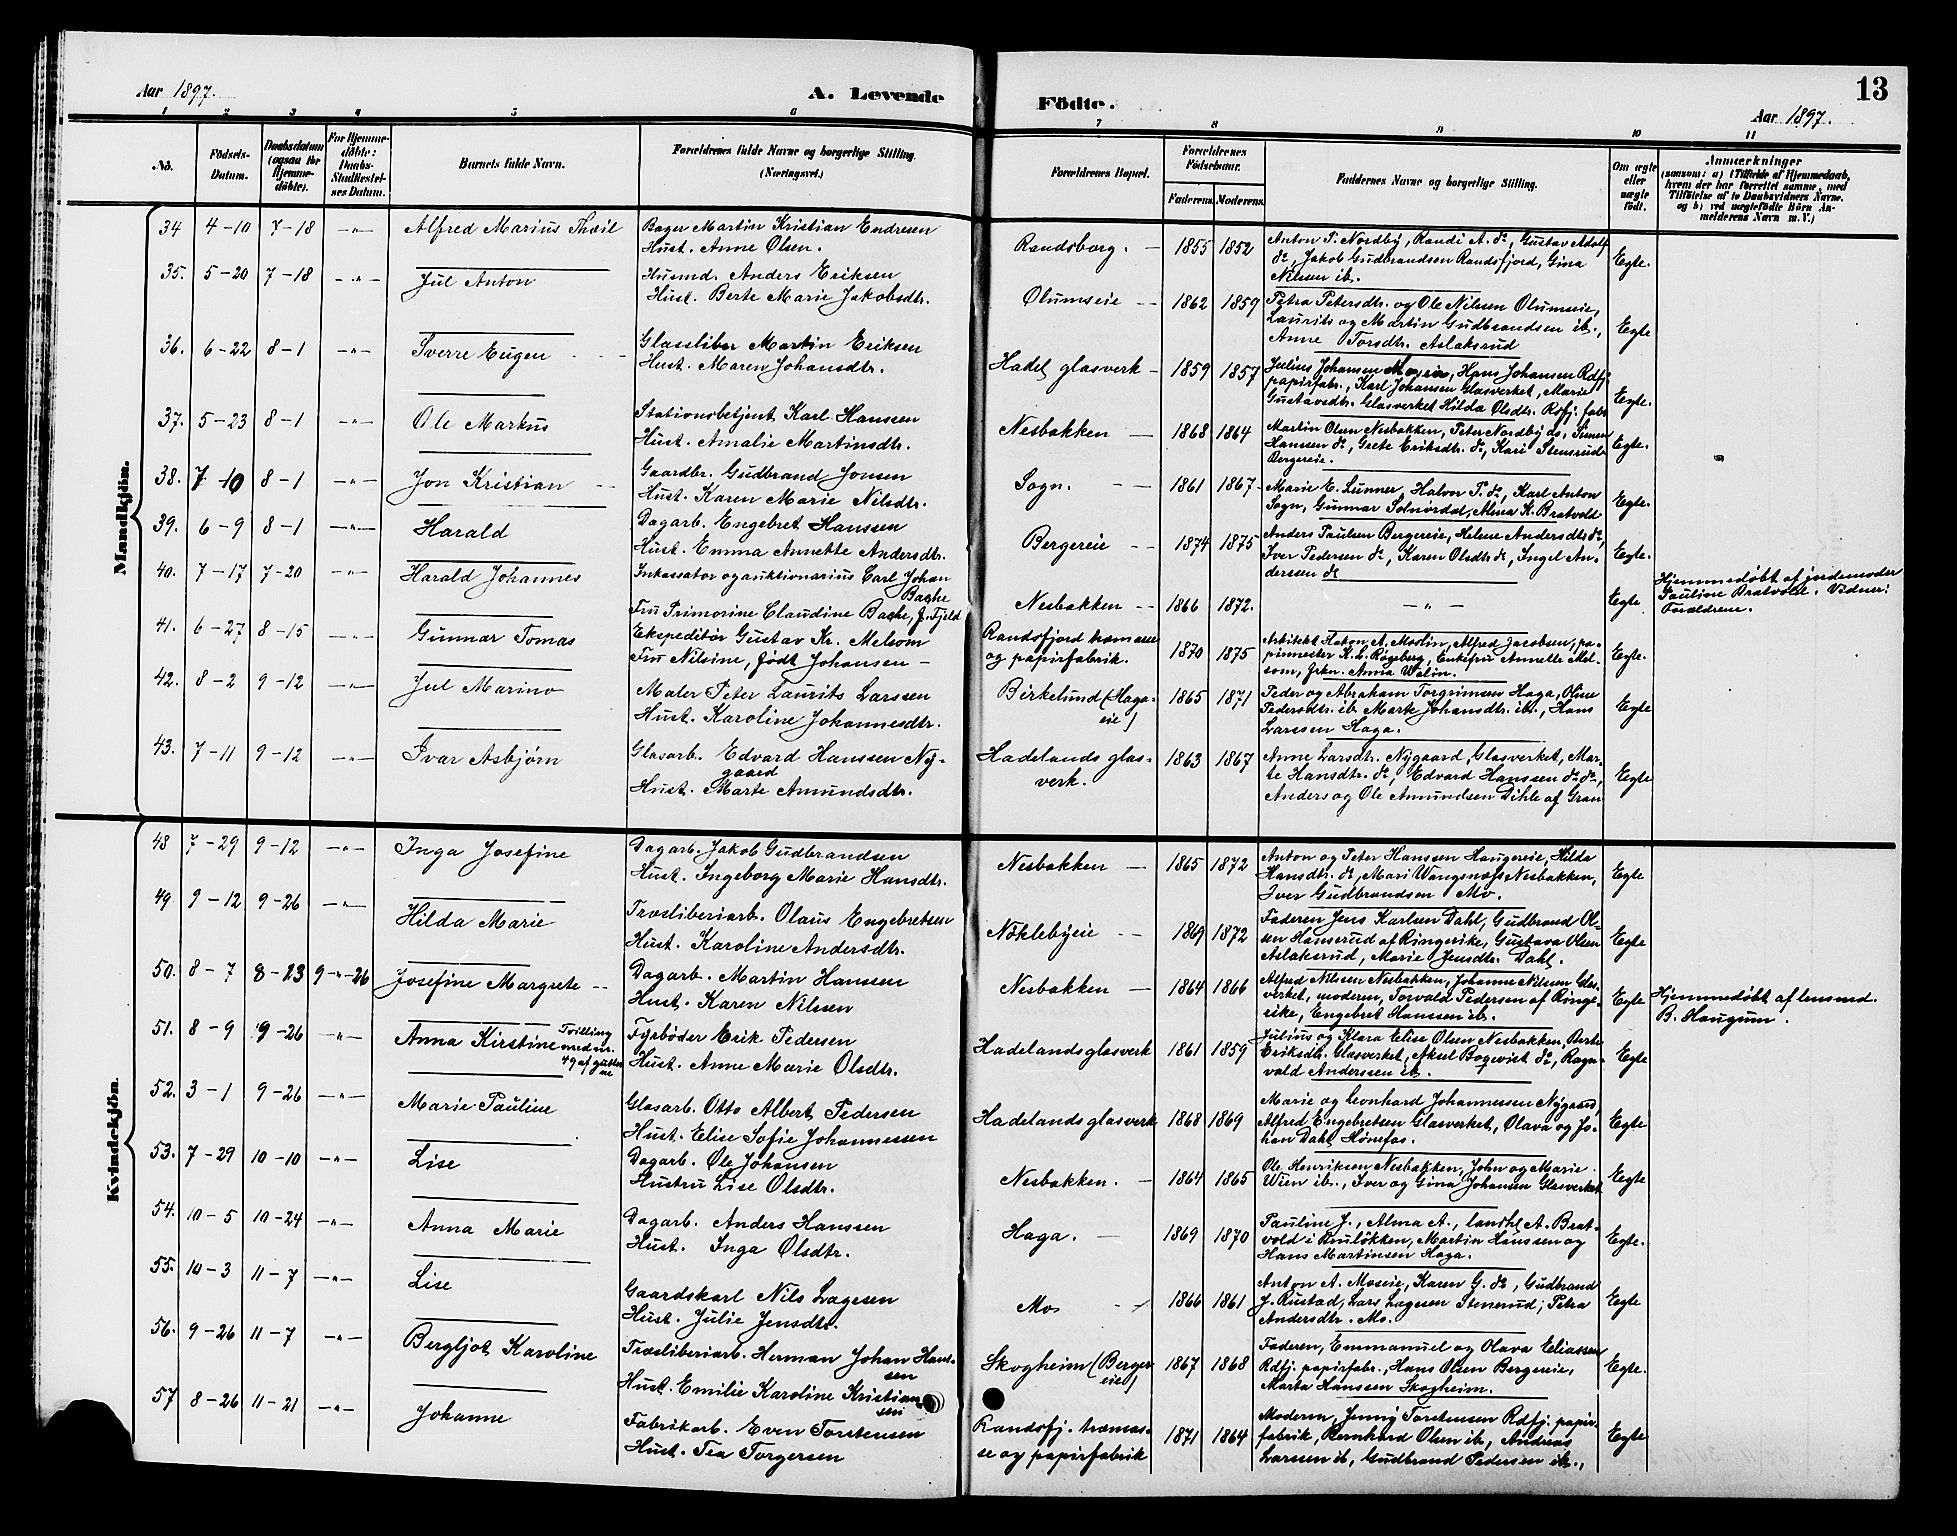 Aar 1897. A. Levende Födte. 13
Aar 1897.
1 2 3 4 5 6 7 8 9 10 11
No. Födsels-Datum. Daabsdatum (ogsaa for Hjemmedöbte). For Hjemmedöbte: Daabs-Stadfæstelses Datum. Barnets fulde Navn. Forældrenes fulde Navne og borgerlige Stilling. (Næringsvei.) Forældrenes Bopæl. Forældrenes Födselsaar. Faderens. Moderens. Faddernes Navne og borgerlige Stilling. Om ægte eller uægte födt. Anmærkninger (saasom: a) i Tilfælde af Hjemmedaab, hvem der har forrettet samme, med Tilföielse af to Daabsvidners Navne. og b) ved uægtefödte Börn Anmelderens Navn m. V.)
Mandkjön.
34 4-10 7-18 -"- Alfred Marius Thail Bager Martin Kristian Endresen
Hust. Anne Olsen. Randsborg. - 1855 1852 Anton T. Nordby, Randi A. do, Gustav Adolf
do, Jakob Gudbrandsen Randsfjord, Gina
Nilsen ib. Egte.
35. 5-20 7-18 -"- Jul Anton Husmd. Anders Eriksen
Hust. Berte Marie Jakobsdtr. Olumseie - 1862 1859 Petra Petersdtr. og Ole Nilsen Olumseie,
Laurits og Martin Gudbrandsen ib.,
Anne Torsdtr. Aslaksrud Egte
36. 6-22 8-1 -"- Sverre Eugen Glassliber Martin Eriksen
Hust. Maren Johansdtr. Hadel glasverk - 1859 1857 Julius Johansen Moen, Hans Johansen Rdfj
papirfabr., Karl Johansen Glasverket, Marie
Gustavsdtr. Glasverket Hilda Olsdtr. Rdfj. fabr Egte.
37. 5-23 8-1 -"- Ole Markus Stationsbetjent Karl Hanssen
Hust. Amalie Martinsdtr. Nesbakken - 1868 1864 Martin Olsen Nesbakken, Peter Nordby do, Simen
Hanssen do, Grete Eriksdtr. do, Kari Stensrud
Bergereie. Egte.
38. 7-10 8-1 -"- Jon Kristian Gaardbr. Gudbrand Jonsen
Hust. Karen Marie Nilsdtr. Sogn. - 1861 1867 Marie E. Lunner, Halvor T. do, Karl Anton
Sogn, Gunnar Solnørdal, Alma K. Bratvold Egte.
39. 6-9 8-1 -"- Harald Dagarb. Engebret Hanssen
Hust. Emma Annette Andersdtr. Bergereie - 1874 1875 Anders Paulsen Bergereie, Helene Andersdtr do,
Iver Pedersen do, Karen Olsdtr do, Ingel An-
derssen do Egte.
40. 7-17 7-20 -"- Harald Johannes Inkassator og auktionarius Carl Johan
Bache
Fru Primorine Claudine Bache, f. Fjeld Nesbakken - 1866 1872. -"- Egte Hjemmedøbt af jordemoder
Pauline Bratvold. Vidner:
Foræeldrene.
41. 6-27 8-15 -"- Gunnar Tomas Ekspeditör Gustav Kr. Melsom
Fru Nilsine, født Johansen - Randsfjord træmasse
og papirfabrik. 1870 1875 Arkitekt Hakon A. Mo, Alfred Jacobsen, pa-
pirmester K. L. Røgeberg, Enkefru Annette Mel-
som, Frkn. Anna Walin. Egte.
42. 8-2 9-12 -"- Jul Marino Maler Peter Laurits Larssen
Hust. Karoline Johannesdtr. Birkelund (Haga-
eie) 1865 1871 Peder og Abraham Torgrimsen Haga, Oline
Pedersdtr. ib. Marte Johansdtr. ib., Hans
Larssen Haga. Egte
43. 7-11 9-12 -"- Ivar Asbjørn Glasarb. Edvard Hanssen Ny-
gaard
Hust. Marte Amundsdtr. Hadelands glas-
verk. 1863 1867 Anne Larsdtr. Nygaard, Glasverket, Mar-
te Hansdtr. do, Edvard Hanssen do do,
Anders og Ole Amundsen Dihle af Gran Egte
Kvindekjön.
48 7-29 9-12 -"- Inga Josefine Dagarb. Jakob Gudbrandsen
Hust. Ingeborg Marie Hansdtr. Nesbakken - 1865 1872 Anton og Peter Hanssen Haugereie, Hilda
Hansdtr. do, Mari Wangsnæs Nesbakken,
Iver Gudbrandsen Mo. Egte
49. 9-12 9-26 -"- Hilda Marie Træsliberiarb. Olaus Engebretsen
Hust. Karoline Andersdtr. Nöklebyeie - 1869 1872 Faderen Jens Karlsen Dahl, Gudbrand Ol-
sen Hanserud af Ringerike, Gustava Olsen
Aslaksrud, Marie Jensdtr. Dahl. Egte
50. 8-7 8-23 9-"-26 Josefine Margrete Dagarb. Martin Hanssen
Hust. Karen Nilssen Nesbakken - 1864 1866 Alfred Nilsen Nesbakken, Johanne Nilsen Glas-
verket, moderen, Torvald Pedersen af Ringe-
rike, Engebret Hanssen ib. Egte Hjemmedøbt af lensmd.
B. Haugum.
51. 8-9 9-26 -"- Anna Kirstine Tvilling
med nr.
49 af gutter
ne Fyrbøder Erik Pedersen
Hust. Anne Marie Olsdtr. Hadelands glasverk 1861 1859 Julius og Klara Elise Olsen Nesbakken, Berte
Eriksdtr. Glasverket, Aksel Boqvist do, Ragn-
vald Anderssen ib. Egte
52. 3-1 9-26 -"- Marie Pauline Glasarb. Otto Albert Pedersen
Hust. Elise Sofie Johannessen Hadelands glasverk 1868 1869 Marie og Leonhard Johannessen Nygaard,
Alfred Engebretsen Glasverket, Olava og Jo-
han Dahl, Hønefos. Egte
53. 7-29 10-10 -"- Lise Dagarb. Ole Johansen
Hustru Lise Olsdtr. Nesbakken. - 1864 1865 Ole Henriksen Nesbakken, John og Marie
Wien ib., Iver og Gina Johansen Glasverket Egte
54. 10-5 10-24 -"- Anna Marie Dagarb. Anders Hanssen
Hust. Inga Olsdtr. Haga. - 1869 1870 Pauline J., Alma A., landh. A. Brat-
vold i Enuløkken, Martin Hanssen og
Hans Martinsen Haga. Egte.
55. 10-3 11-7 -"- Lise Gaardskarl Nils Lagesen
Hust. Julie Jensdtr. Mo 1866 1861 Anton A. Moseie, Karen G. do, Gudbrand
J. Rustad, Lars Lagesen Stenerud, Petra
Andersdtr. Mo. Egte
56. 9-26 11-7 -"- Bergljot Karoline Træsliberiarb. Herman Johan Hans-
sen
Hust. Emilie Karoline Kristian
sen Skogheim (Berger
eie) 1867 1868 Faderen, Emmanuel og Olava Eliassen
Rdfj. papirfabr., Hans Olsen Bergereie,
Marta Hanssen Skogheim. Egte.
57 8-26 11-21 -"- Johanne Fabrikarb. Even Torstensen
Hust. Tea Torgersen Randsfj. træmas-
se og papirfabrik 1871 1864 Moderen, Jenny Torstensen Rdfj. papir-
fabrik, Bernhard Olsen ib., Andreas
Larssen ib, Gudbrand Pedersen ib., Egte